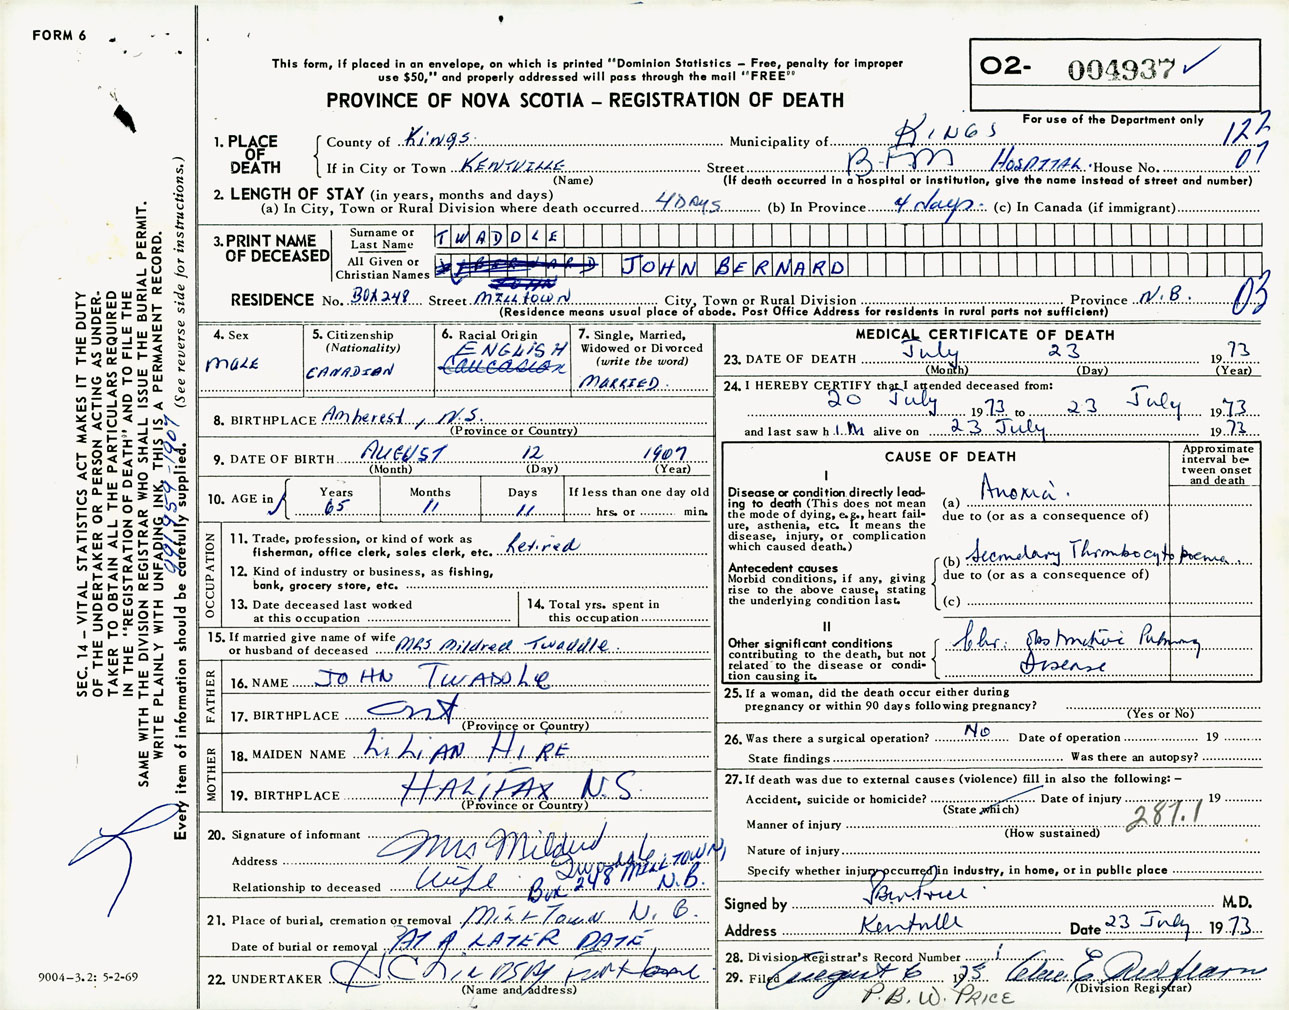 FORM 6
This form, if placed in an envelope, on which is printed "Dominion Statistics – Free, penalty for improper
use $50," and properly addressed will pass through the mail "FREE"
PROVINCE OF NOVA SCOTIA – REGISTRATION OF DEATH
O2- 004937 ✓
For use of the Department only
1. PLACE OF DEATH
County of Kings Municipality of KINGS 122
If in City or Town KENTVILLE Street B.F.M HOSPITAL House No. 07
(Name) (If death occurred in a hospital or institution, give the name instead of street and number)
2. LENGTH OF STAY (in years, months and days)
(a) In City, Town or Rural Division where death occurred 4 DAYS (b) In Province 4 days (c) In Canada (if immigrant)
3. PRINT NAME OF DECEASED
Surname or Last Name TWADDLE
All Given or Christian Names BERNARD JOHN BERNARD
JOHN
RESIDENCE No. BOX 248 Street MILLTOWN City, Town or Rural Division Province N.B. 03
(Residence means usual place of abode. Post Office Address for residents in rural parts not sufficient)
4. Sex
MALE
5. Citizenship
(Nationality)
CANADIAN
6. Racial Origin
ENGLISH
CAUCASIAN
7. Single, Married,
Widowed or Divorced
(write the word)
MARRIED
8. BIRTHPLACE Amherest, N.S.
(Province or Country)
9. DATE OF BIRTH AUGUST 12 1907
(Month) (Day) (Year)
10. AGE in
Years Months Days If less than one day old
65 11 11 hrs. or min.
OCCUPATION
11. Trade, profession, or kind of work as
fisherman, office clerk, sales clerk, etc. Retired
12. Kind of industry or business, as fishing,
bank, grocery store, etc.
13. Date deceased last worked
at this occupation
14. Total yrs. spent in
this occupation
15. If married give name of wife
or husband of deceased Mrs Mildred Twaddle
FATHER
16. NAME JOHN TWADDLE
17. BIRTHPLACE Ont
(Province or Country)
MOTHER
18. MAIDEN NAME LILIAN HIRE
19. BIRTHPLACE HALIFAX N.S.
(Province or Country)
20. Signature of informant Mrs Mildred
Twaddle
Address Box 248 MILLTOWN,
N.B.
Relationship to deceased Wife
21. Place of burial, cremation or removal MILLTOWN N.B.
Date of burial or removal AT A LATER DATE
22. UNDERTAKER
(Name and address)
MEDICAL CERTIFICATE OF DEATH
23. DATE OF DEATH July 23 1973
(Month) (Day) (Year)
24. I HEREBY CERTIFY that I attended deceased from:
20 July 1973 to 23 July 1973
and last saw h IM alive on 23 July 1973
CAUSE OF DEATH
Approximate
interval be-
tween onset
and death
I
Disease or condition directly lead-
ing to death (This does not mean
the mode of dying, e.g., heart fail-
ure, asthenia, etc. It means the
disease, injury, or complication
which caused death.)
(a) Anoxia.
due to (or as a consequence of)
Antecedent causes
Morbid conditions, if any, giving
rise to the above cause, stating
the underlying condition last.
(b) Secondary Thrombocytopoenia.
due to (or as a consequence of)
(c)
II
Other significant conditions
contributing to the death, but not
related to the disease or condi-
tion causing it.
Chr. obstructive Pulmonary
Disease
25. If a woman, did the death occur either during
pregnancy or within 90 days following pregnancy?
(Yes or No)
26. Was there a surgical operation? No Date of operation 19
State findings Was there an autopsy?
27. If death was due to external causes (violence) fill in also the following: –
Accident, suicide or homicide? Date of injury 19
(State which)
Manner of injury 287.1
(How sustained)
Nature of injury
Specify whether injury occurred in industry, in home, or in public place
Signed by M.D.
Address Kentville Date 23 July 1973
28. Division Registrar's Record Number
29. Filed August 6 1973
(Division Registrar)
P.B.W. PRICE
SEC. 14 – VITAL STATISTICS ACT MAKES IT THE DUTY
OF THE UNDERTAKER OR PERSON ACTING AS UNDER-
TAKER TO OBTAIN ALL THE PARTICULARS REQUIRED
IN THE "REGISTRATION OF DEATH" AND TO FILE THE
SAME WITH THE DIVISION REGISTRAR WHO SHALL ISSUE THE BURIAL PERMIT.
WRITE PLAINLY WITH UNFADING INK, THIS IS A PERMANENT RECORD.
Every item of information should be carefully supplied. (See reverse side for instructions.)
9004–3.2: 5-2-69